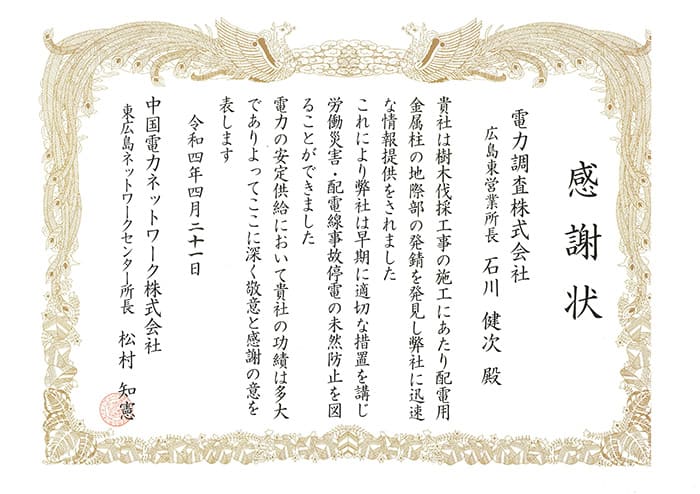 感謝状
電力調査株式会社
広島東営業所長 石川 健次 殿
貴社は樹木伐採工事の施工にあたり配電用
金属柱の地際部の発錆を発見し弊社に迅速
な情報提供をされました
これにより弊社は早期に適切な措置を講じ
労働災害・配電線事故停電の未然防止を図
ることができました
電力の安定供給において貴社の功績は多大
でありよってここに深く敬意と感謝の意を
表します
令和四年四月二十一日
中国電力ネットワーク株式会社
東広島ネットワークセンター所長 松村 知憲